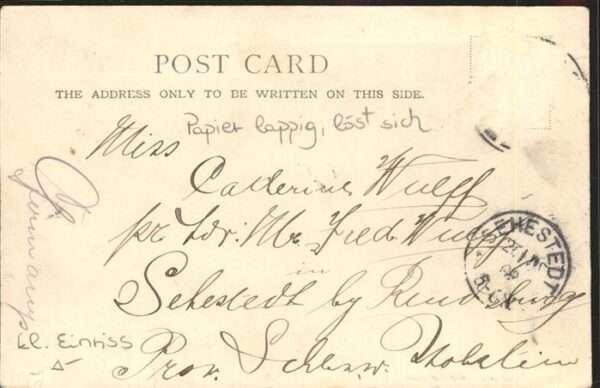 POST CARD
THE ADDRESS ONLY TO BE WRITTEN ON THIS SIDE.
Papier lappig, löst sich
Miss
Catherine Wulff
pr Adr: Mr Fred Wulff
in
Sehestedt by Rendsburg
Prov. Schlesw. Holstein
Germany
kl. Einriss
SEHESTEDT